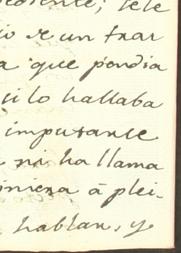 io se un trar
a que pondia
uilo hallaba
imputante
ni ha llama
iniera á plei-
hablan, y